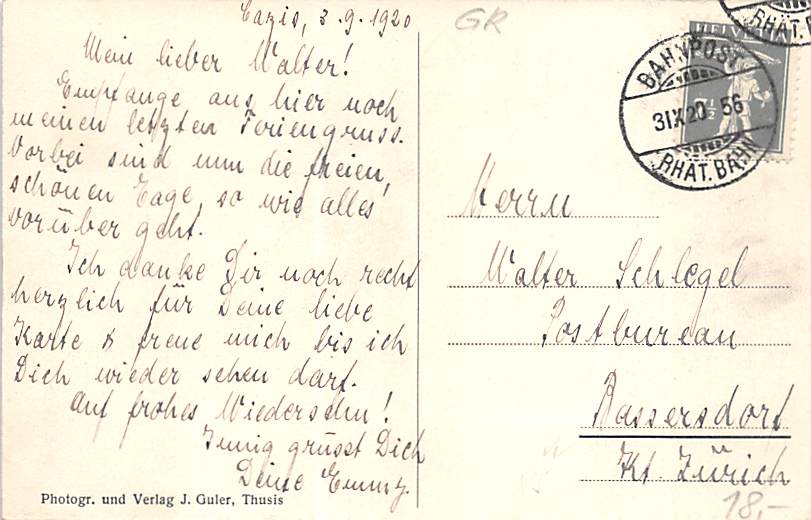 Cazis, 3.9.1920
Mein lieber Walter!
Empfange aus hier noch
meinen letzten Feriengruss.
Vorbei sind nun die freien,
schönen Tage, so wie alles
vorüber geht.
Ich danke Dir noch recht
herzlich für Deine liebe
Karte & freue mich bis ich
Dich wieder sehen darf.
Auf frohes Wiedersehn!
Innig grüsst Dich
Deine Emmy.
Photogr. und Verlag J. Guler, Thusis
GR
HELVE
BAHNPOST
31X20 56
RHÄT. BAHN
RHÄT.
Herrn
Walter Schlegel
Postbureau
Bassersdorf
Kt. Zürich
18,-